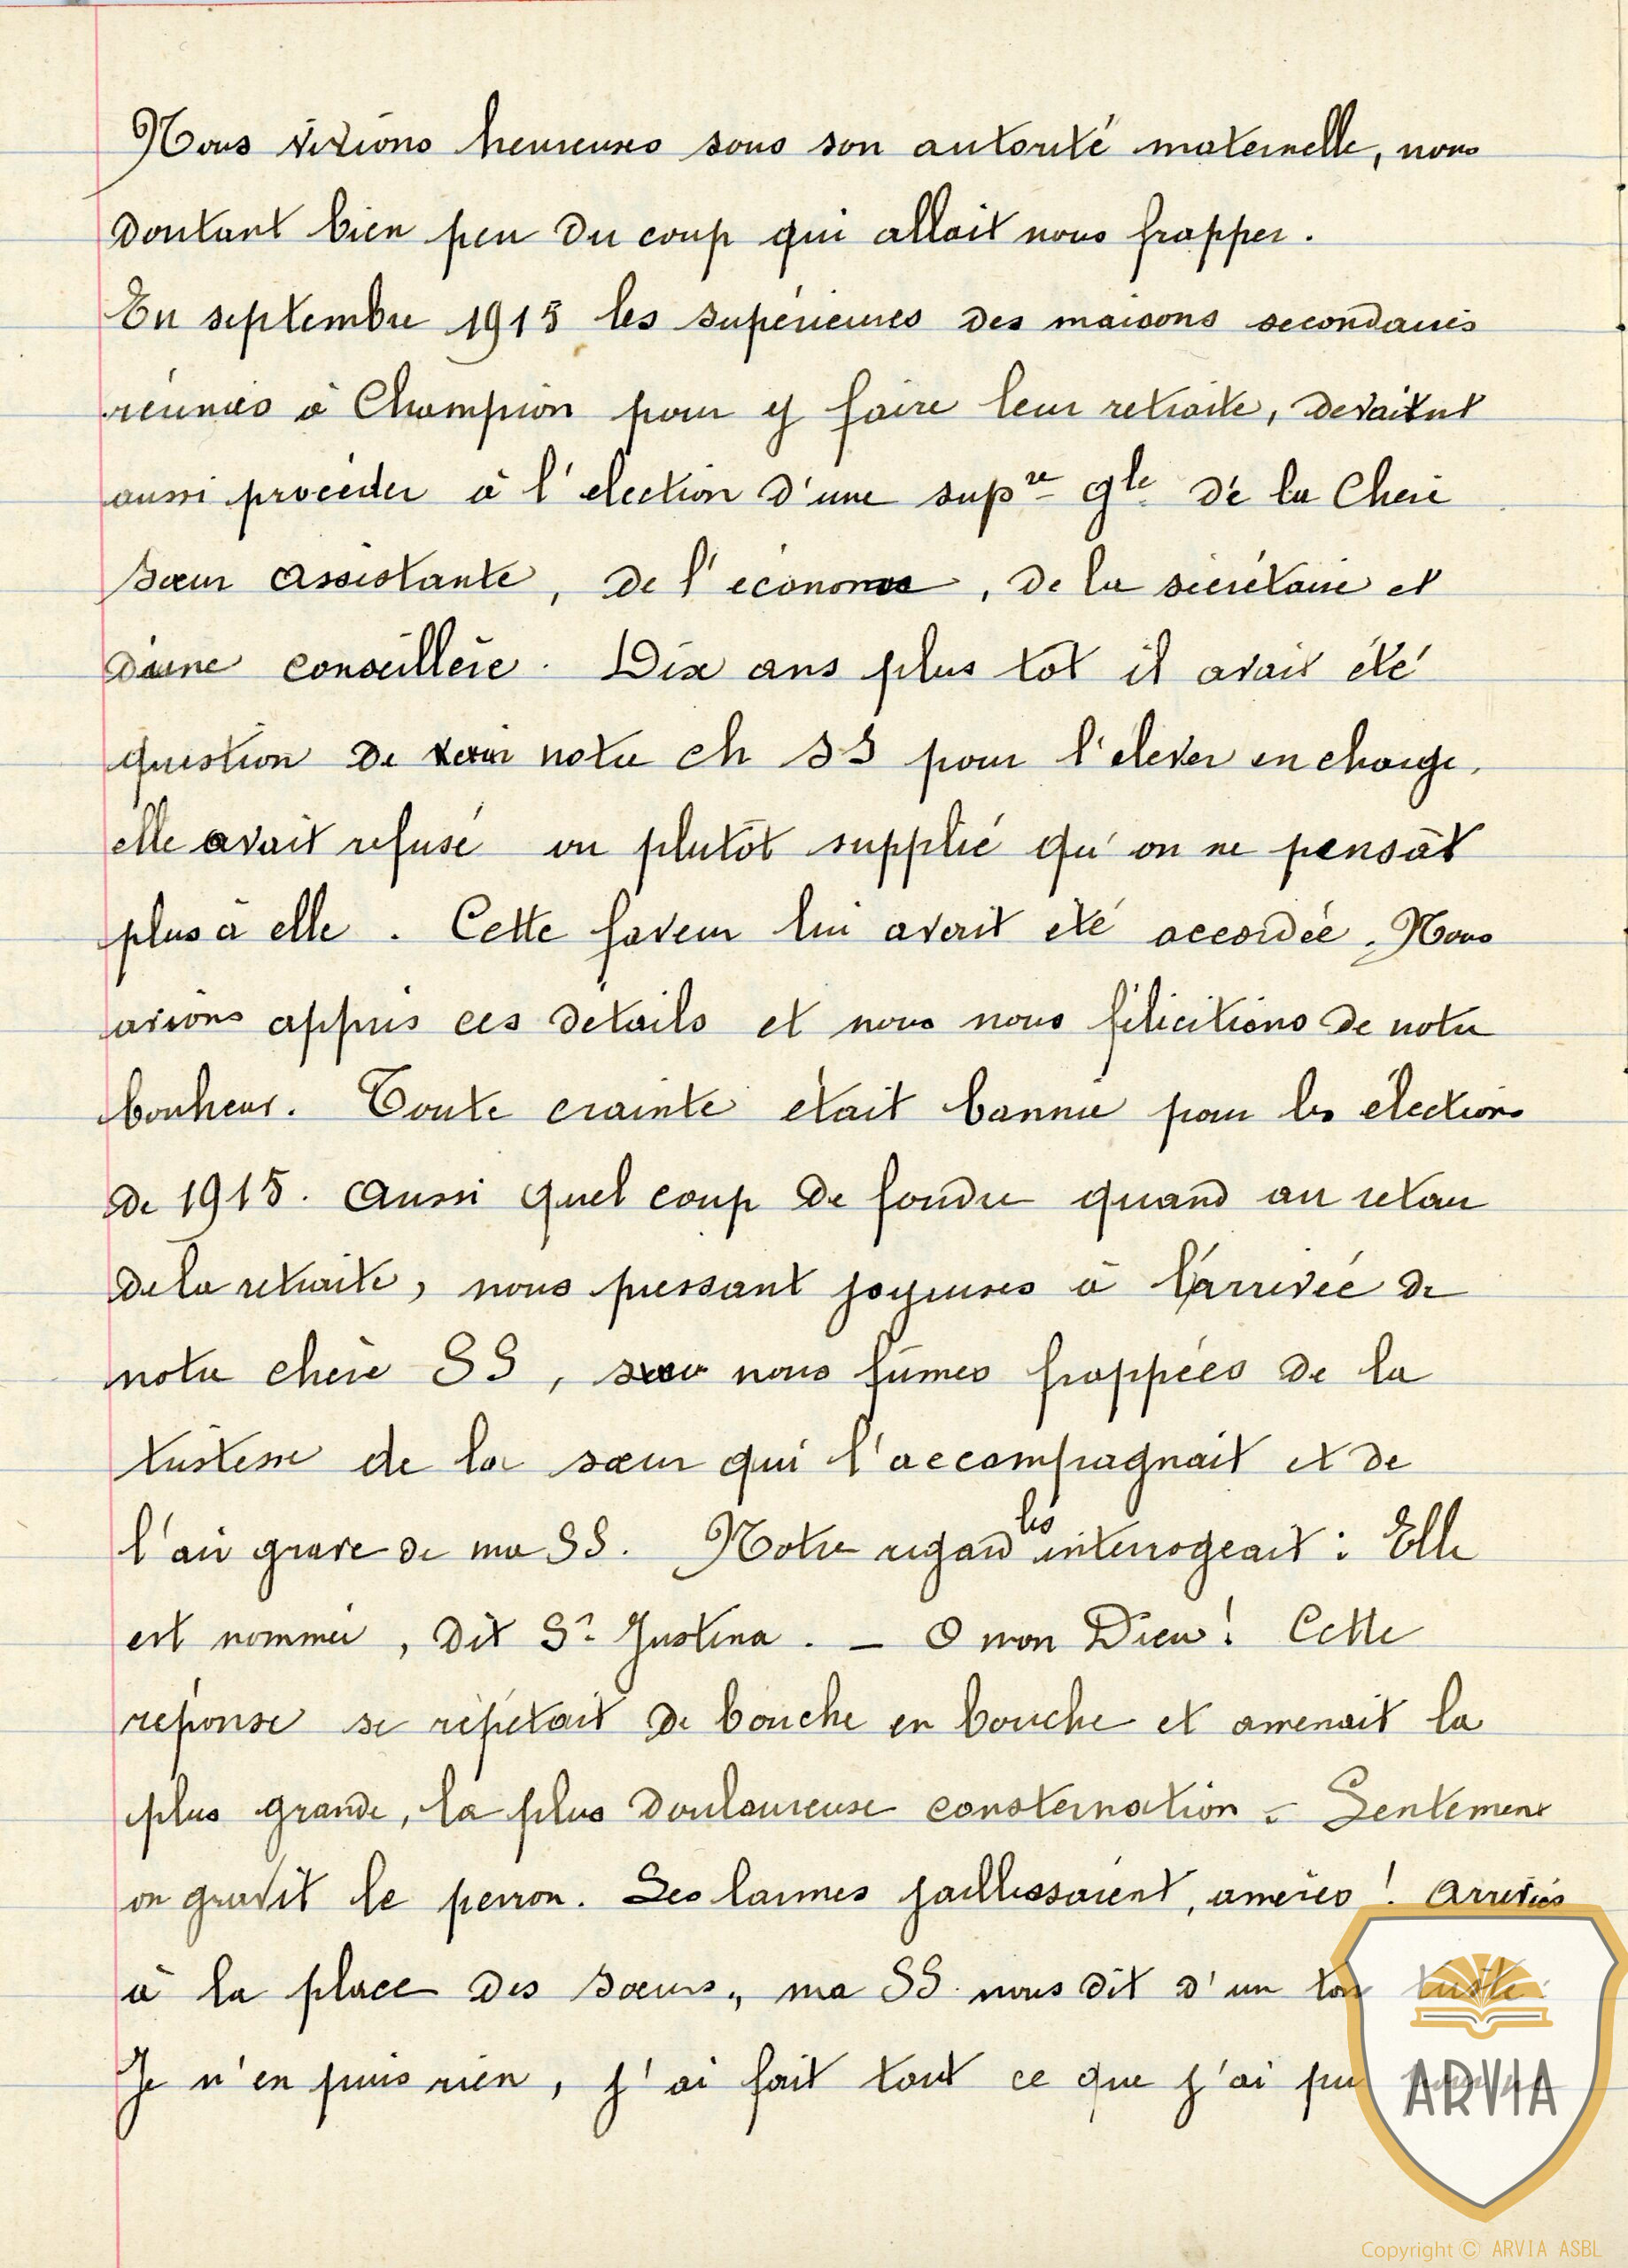 Nous vivions heureuses sous son autorité maternelle, nous
doutant bien peu du coup qui allait nous frapper.
En septembre 1915 les supérieures des maisons secondaires
réunies à Champion pour y faire leur retraite, devaient
aussi procéder à l'élection d'une sup^re g^le de la Chère
Sœur assistante, de l'économe, de la secrétaire et
d'une conseillère. Dix ans plus tôt il avait été
question de notre ch SS pour l'élever en charge,
elle avait refusé ou plutôt supplié qu'on ne pensât
plus à elle. Cette faveur lui avait été accordée. Nous
avions appris ces détails et nous nous félicitions de notre
bonheur. Toute crainte était bannie pour les élections
de 1915. Aussi quel coup de foudre quand au retour
de la retraite, nous pressant joyeuses à l'arrivée de
notre chère SS, nous fûmes frappées de la
tristesse de la sœur qui l'accompagnait et de
l'air grave de ma SS. Notre regard les interrogeait : Elle
est nommée, dit S^r Justina. – O mon Dieu ! Cette
réponse se répétait de bouche en bouche et amenait la
plus grande, la plus douloureuse consternation. Lentement
on gravit le perron. Les larmes jaillissaient, amères ! Arrivées
à la place des sœurs, ma SS. nous dit d'un ton triste
Je n'en puis rien, j'ai fait tout ce que j'ai pu
ARVIA
Copyright © ARVIA ASBL